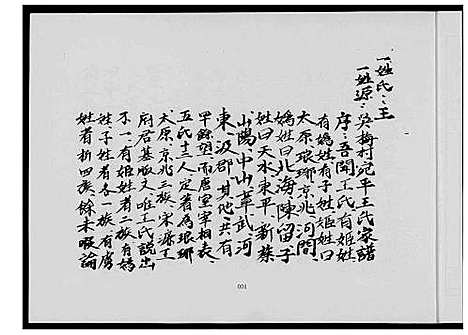 一姓氏：王
一姓源：吳梅村宛平王氏家譜
序：吾聞王氏有姬姓
有媯姓有子姓姬姓曰
太原琅琊京兆河間，
媯姓曰北海陳留子
姓曰天水東平新蔡
山陽中山章武河
東汲郡其他共有
罕餘望而唐室宰相表
五氏十三人定著為琅琊
太原京兆三族宋源王
府君墓版文唯王氏說出
不一有姬姓者二族有媯
姓子姓者各一族有虜
姓者析四族餘未暇論
001